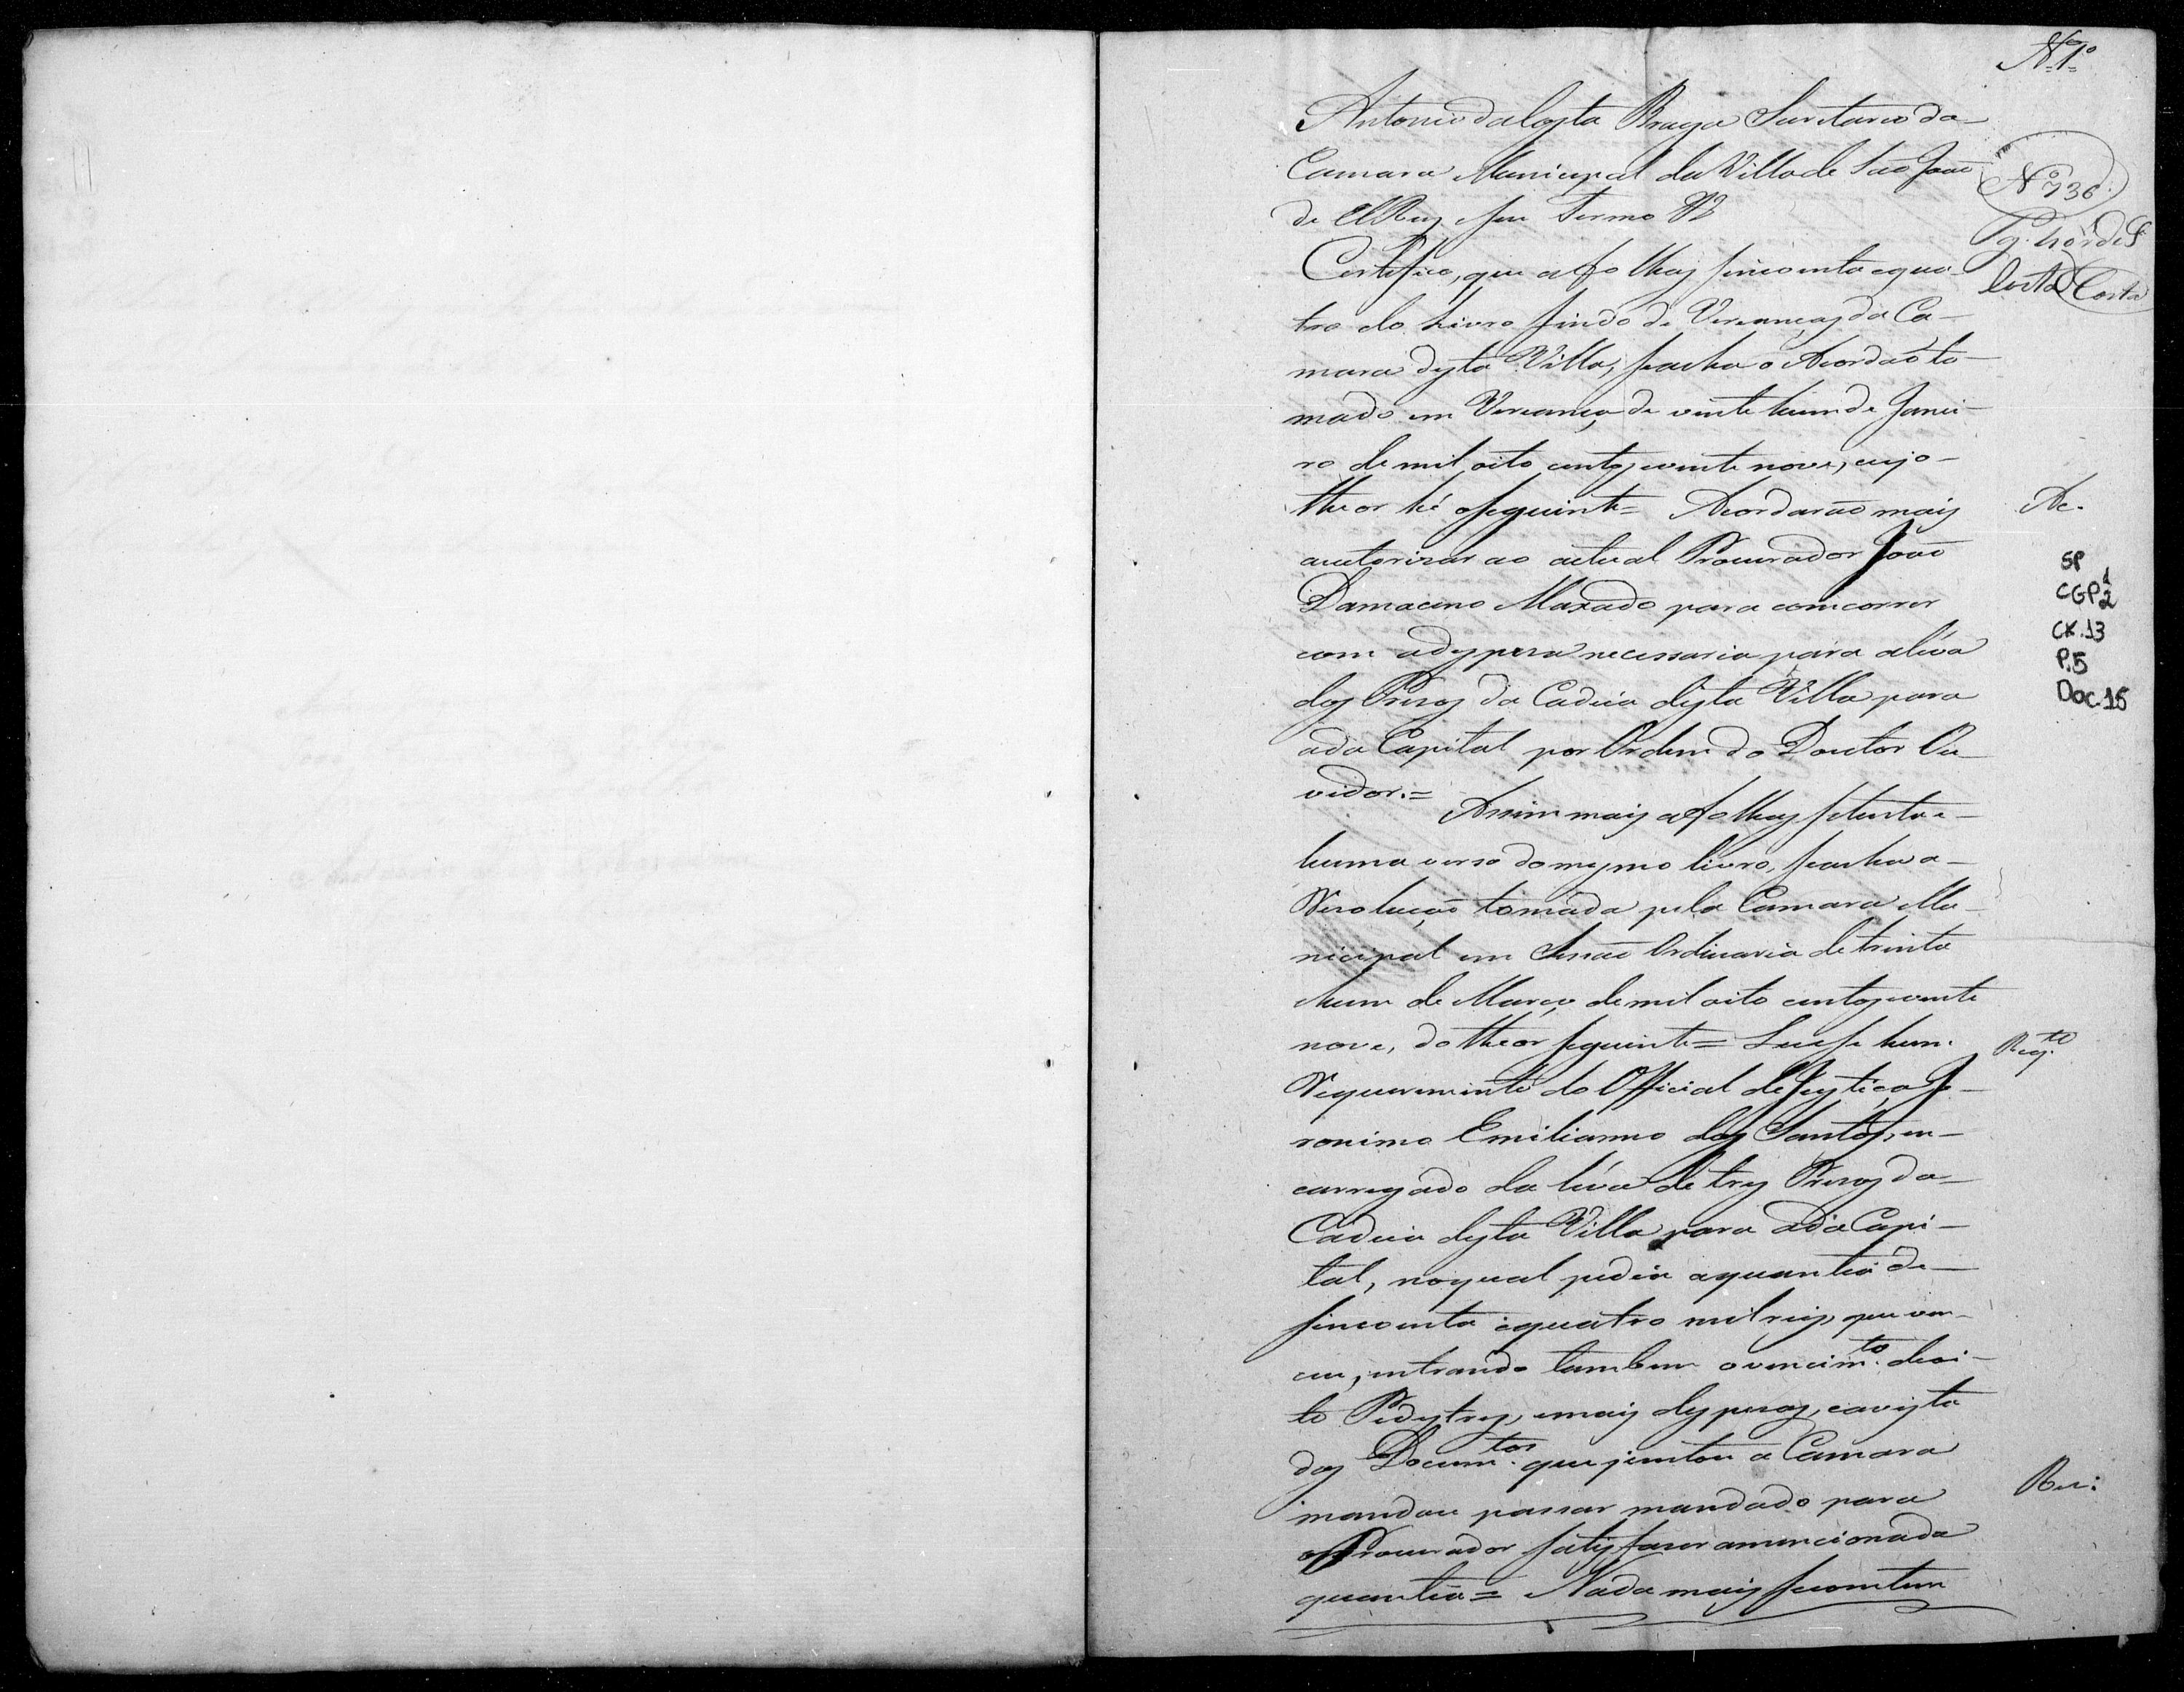 N.1º
Antonio da Costa Braga Secretario da
Camara Municipal da Villa de São João
de ElRey e seu Termo &
Nº 736
Pg.
Costa Costa
Certifico, que a folhas sincoenta e qua-
tro do Livro findo de Vereanças da Ca-
mara desta Villa, se acha o Acordaõ to-
mado em Vereança de vinte hum de Janei-
ro de mil oito centos e vinte nove, cujo
theor hé o seguinte = Acordaraõ mais
Ac.
autorisar ao actual Procurador João
Damaceno Maxado para comcorrer
com a despesa necessaria para a léva
dos Presos da Cadeia desta Villa para
a da Capital por Ordem do Doutor Ou-
vidor. =
SP
CGP 1 2
CX.13
P.5
Doc.15
Assim mais a folhas setenta e
huma verso do mesmo livro, se acha a
Resoluçaõ tomada pela Camara Mu-
nicipal em Sessaõ Ordinaria de trinta
e hum de Março de mil oito centos e vinte
nove, do theor seguinte = Leo-se hum
Reqto.
Requerimento do Official de Justiça Je-
ronimo Emilianno dos Santos, en-
carregado da léva de tres Presos da
Cadeia desta Villa para a da Capi-
tal, no qual pedia a quantia de
sincoenta e quatro mil reis, que ven-
ceu, entrando tambem o vencimto. de oi-
to Pedestres, e mais despesas, e a vista
dos Documtos. que juntou a Camara
mandou passar mandado para
Res:
o Procurador satisfaser a mencionada
quantia = Nada mais se comtem